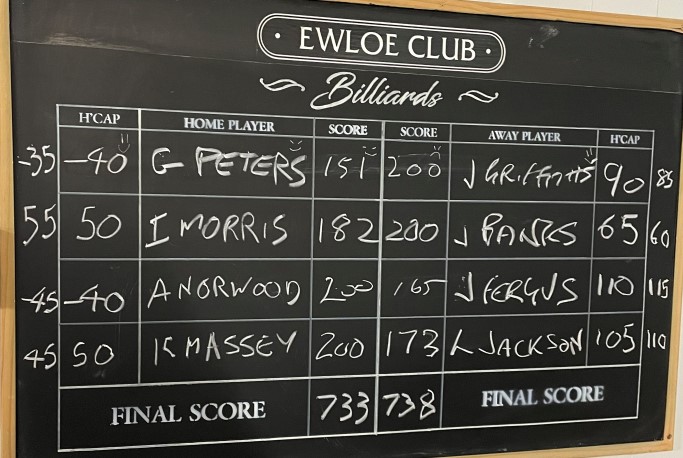 · EWLOE CLUB ·
Billiards
H'CAP HOME PLAYER SCORE SCORE AWAY PLAYER H'CAP
-35 -40 G PETERS 151 200 J GRIFFITHS 90 85
55 50 I MORRIS 182 200 J BANKS 65 60
-45 -40 A NORWOOD 200 165 J FERGUS 110 115
45 50 K MASSEY 200 173 L JACKSON 105 110
FINAL SCORE 733 738 FINAL SCORE